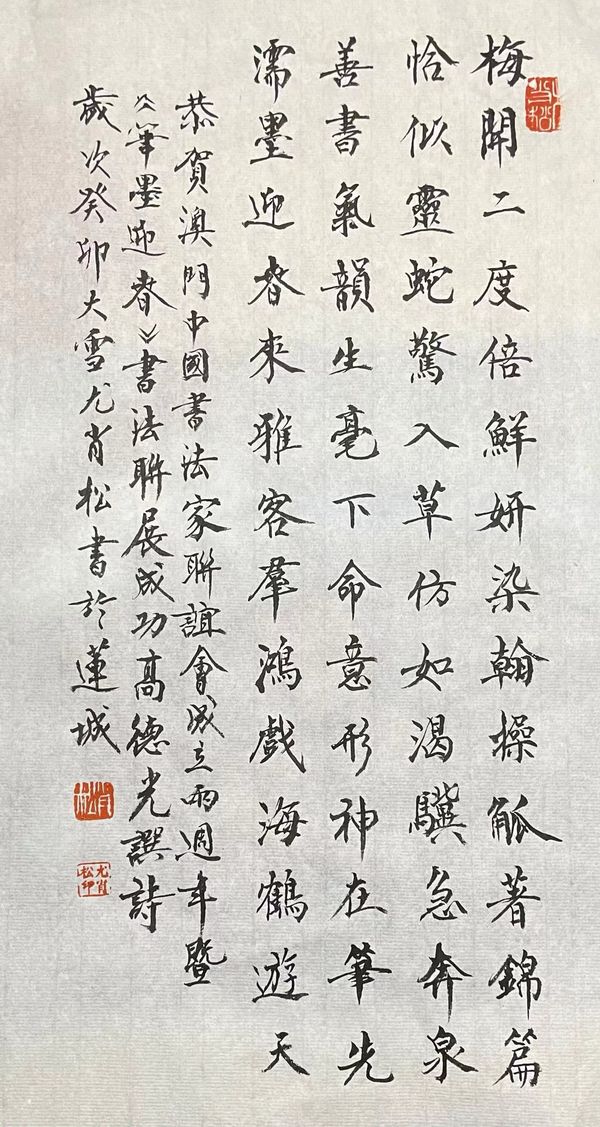 梅開二度倍鮮妍染翰操觚著錦篇
恰似靈蛇驚入草仿如渴驥急奔泉
善書氣韻生毫下命意形神在筆先
濡墨迎春來雅客羣鴻戲海鶴遊天
恭賀澳門中國書法家聯誼會成立兩週年暨
《筆墨迎春》書法聯展成功高德光譔詩
歲次癸卯大雪尤肖松書於蓮城
肖松
尤肖松印